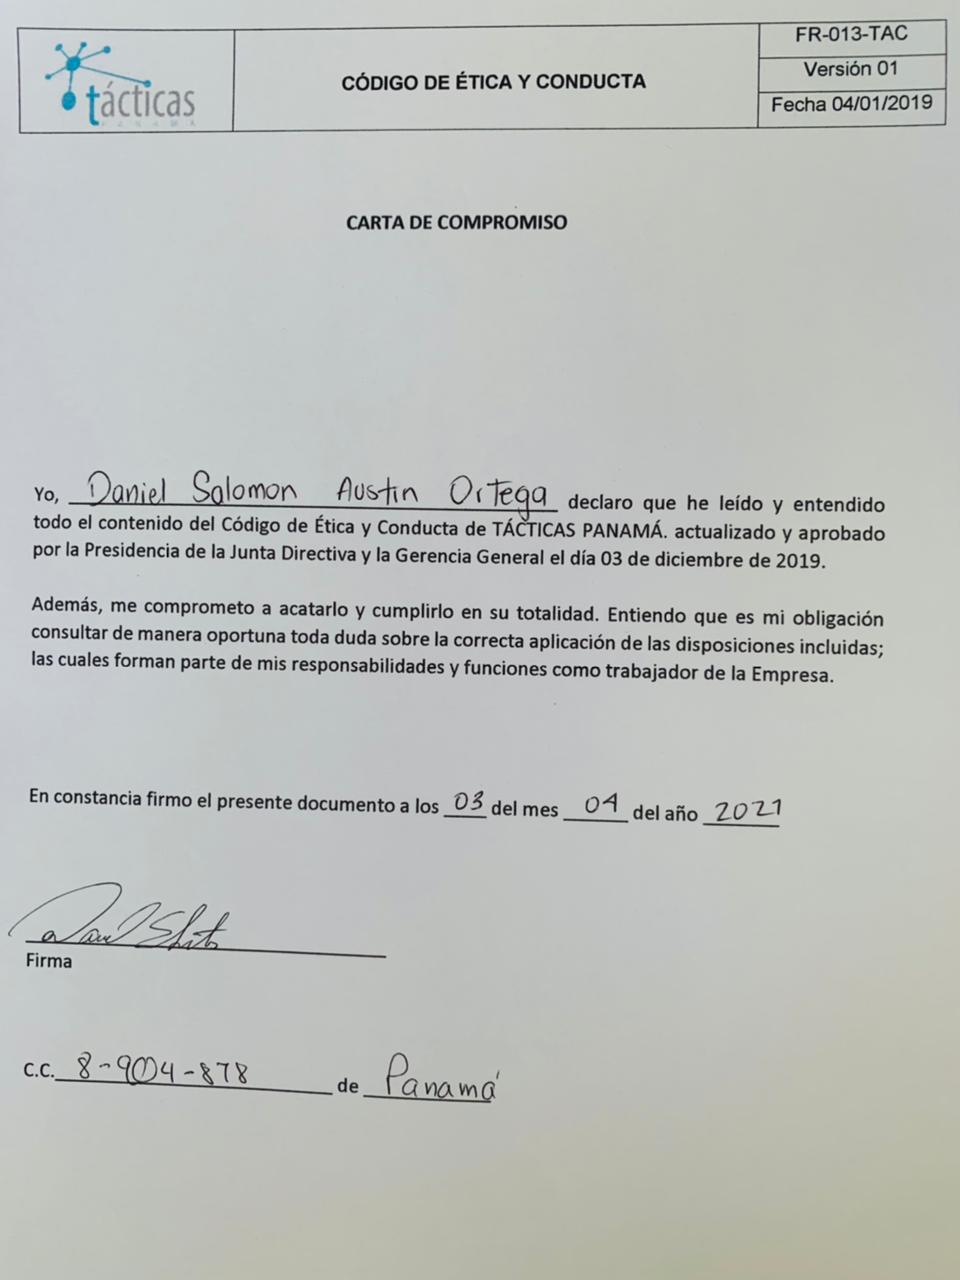 tácticas
PANAMÁ
CÓDIGO DE ÉTICA Y CONDUCTA
FR-013-TAC
Versión 01
Fecha 04/01/2019
CARTA DE COMPROMISO
Yo, Daniel Salomon Austin Ortega declaro que he leído y entendido
todo el contenido del Código de Ética y Conducta de TÁCTICAS PANAMÁ. actualizado y aprobado
por la Presidencia de la Junta Directiva y la Gerencia General el día 03 de diciembre de 2019.
Además, me comprometo a acatarlo y cumplirlo en su totalidad. Entiendo que es mi obligación
consultar de manera oportuna toda duda sobre la correcta aplicación de las disposiciones incluidas;
las cuales forman parte de mis responsabilidades y funciones como trabajador de la Empresa.
En constancia firmo el presente documento a los 03 del mes 04 del año 2021
Firma
C.C. 8-904-878 de Panamá